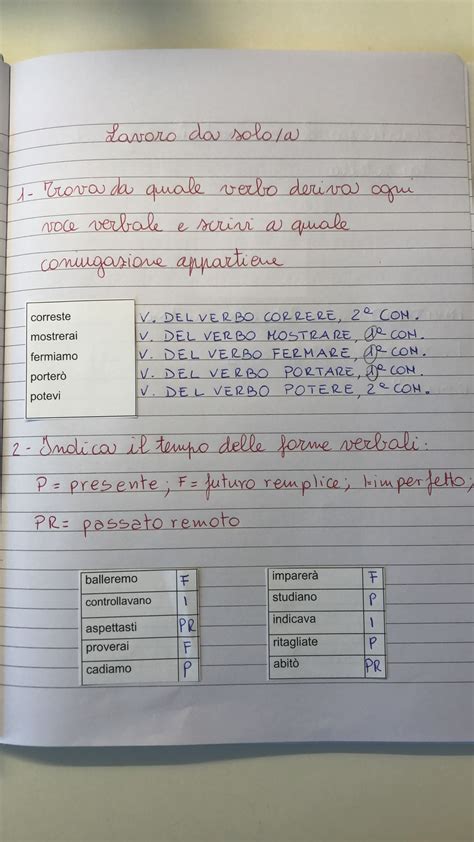 Lavoro da solo/a
1- Trova da quale verbo deriva ogni
voce verbale e scrivi a quale
coniugazione appartiene
correste V. DEL VERBO CORRERE, 2ª CON.
mostrerai V. DEL VERBO MOSTRARE, 1ª CON.
fermiamo V. DEL VERBO FERMARE, 1ª CON.
porterò V. DEL VERBO PORTARE, 1ª CON.
potevi V. DEL VERBO POTERE, 2ª CON.
2- Indica il tempo delle forme verbali:
P = presente; F = futuro semplice; I=imperfetto;
PR= passato remoto
balleremo F
controllavano I
aspettasti PR
proverai F
cadiamo P
imparerà F
studiano P
indicava I
ritagliate P
abitò PR